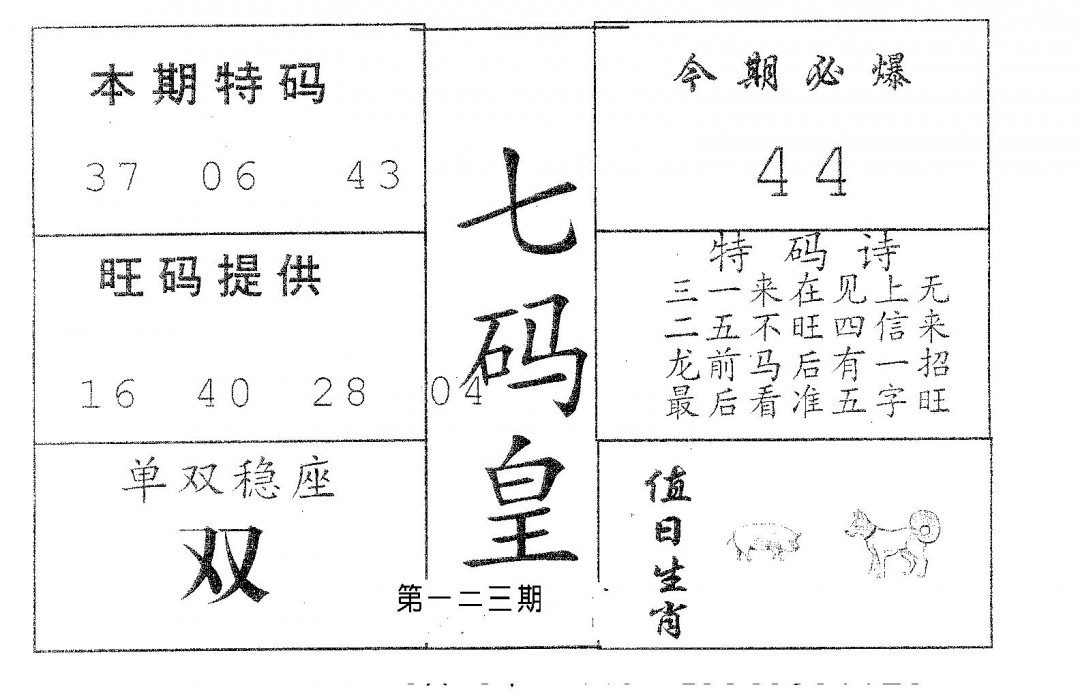 本期特码
37 06 43
旺码提供
16 40 28 04
单双稳座
双
七码皇
第一二三期
今期必爆
44
特码诗
三一来在见上无
二五不旺四信来
龙前马后有一招
最后看准五字旺
值日生肖